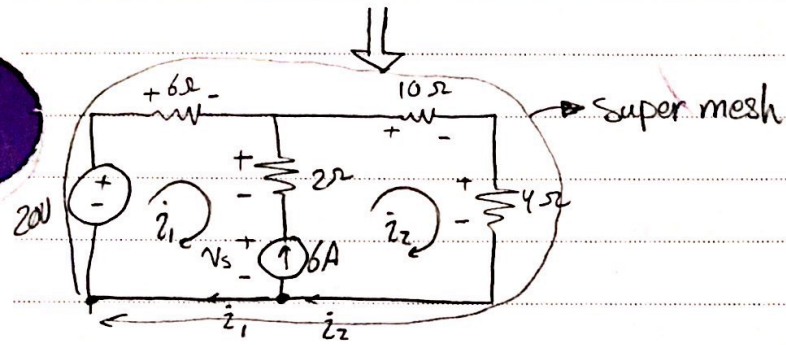 + 6Ω -
10Ω
+ -
Super mesh
+
-
2Ω
+
-
4Ω
20V
+
-
i₁
Vs
+
-
6A
i₂
i₁
i₂